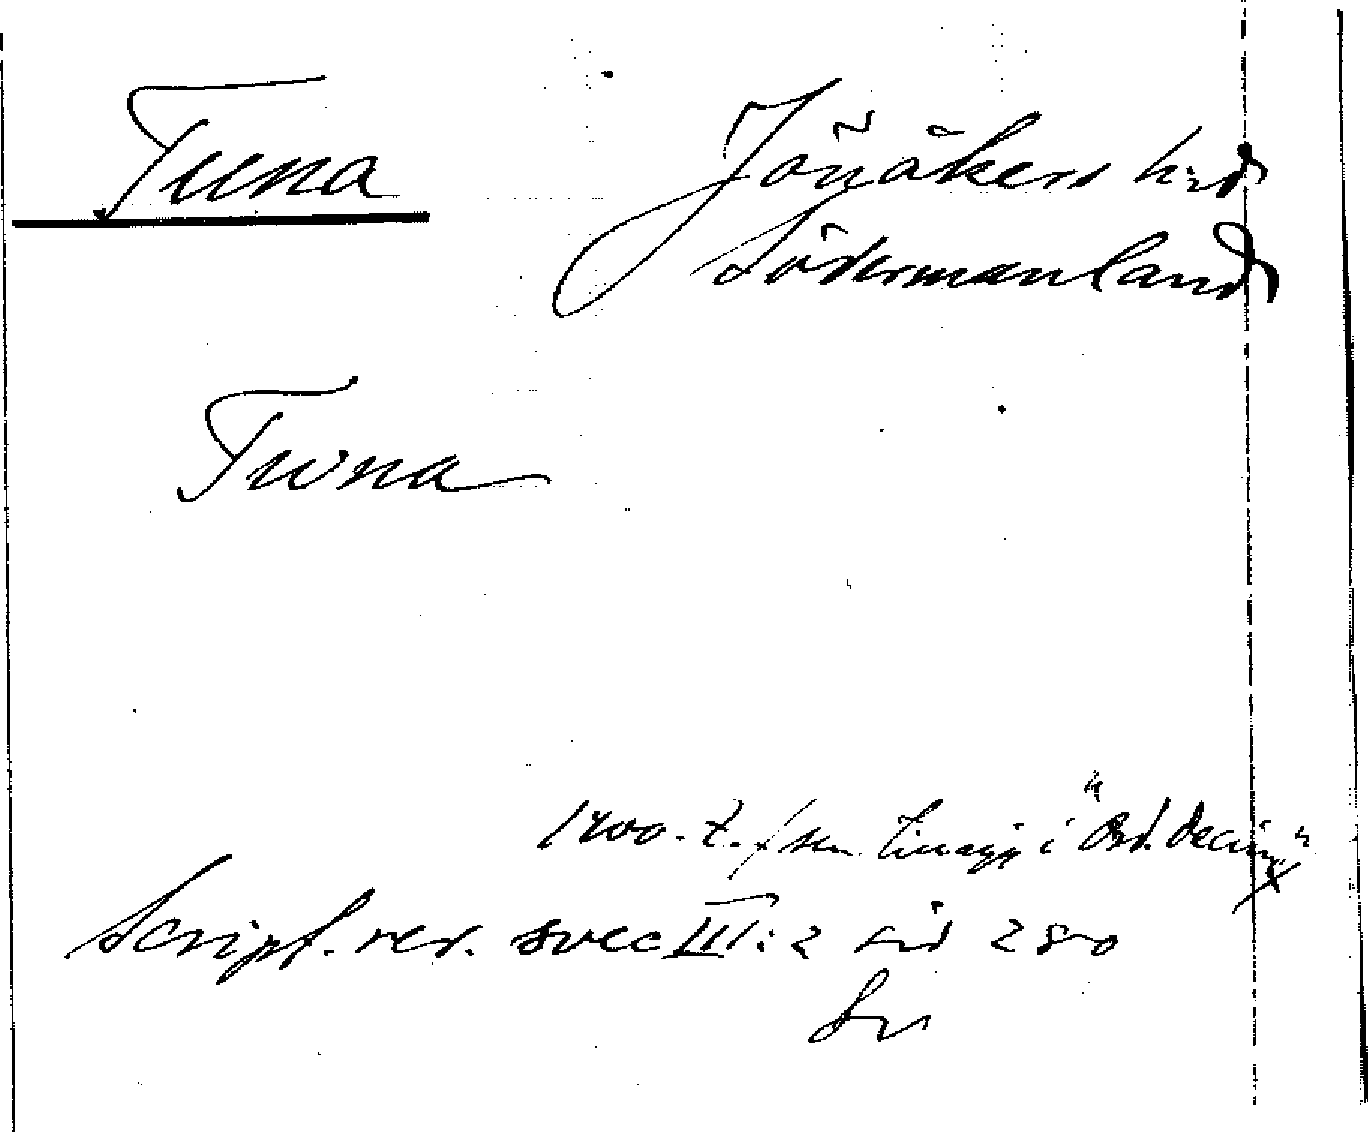 Tuna
Jönåkers hrd
Södermanland
Twna
1400-t. sen tillägg i "Ord. decim"
Script. rer. svec III:2 sid 280